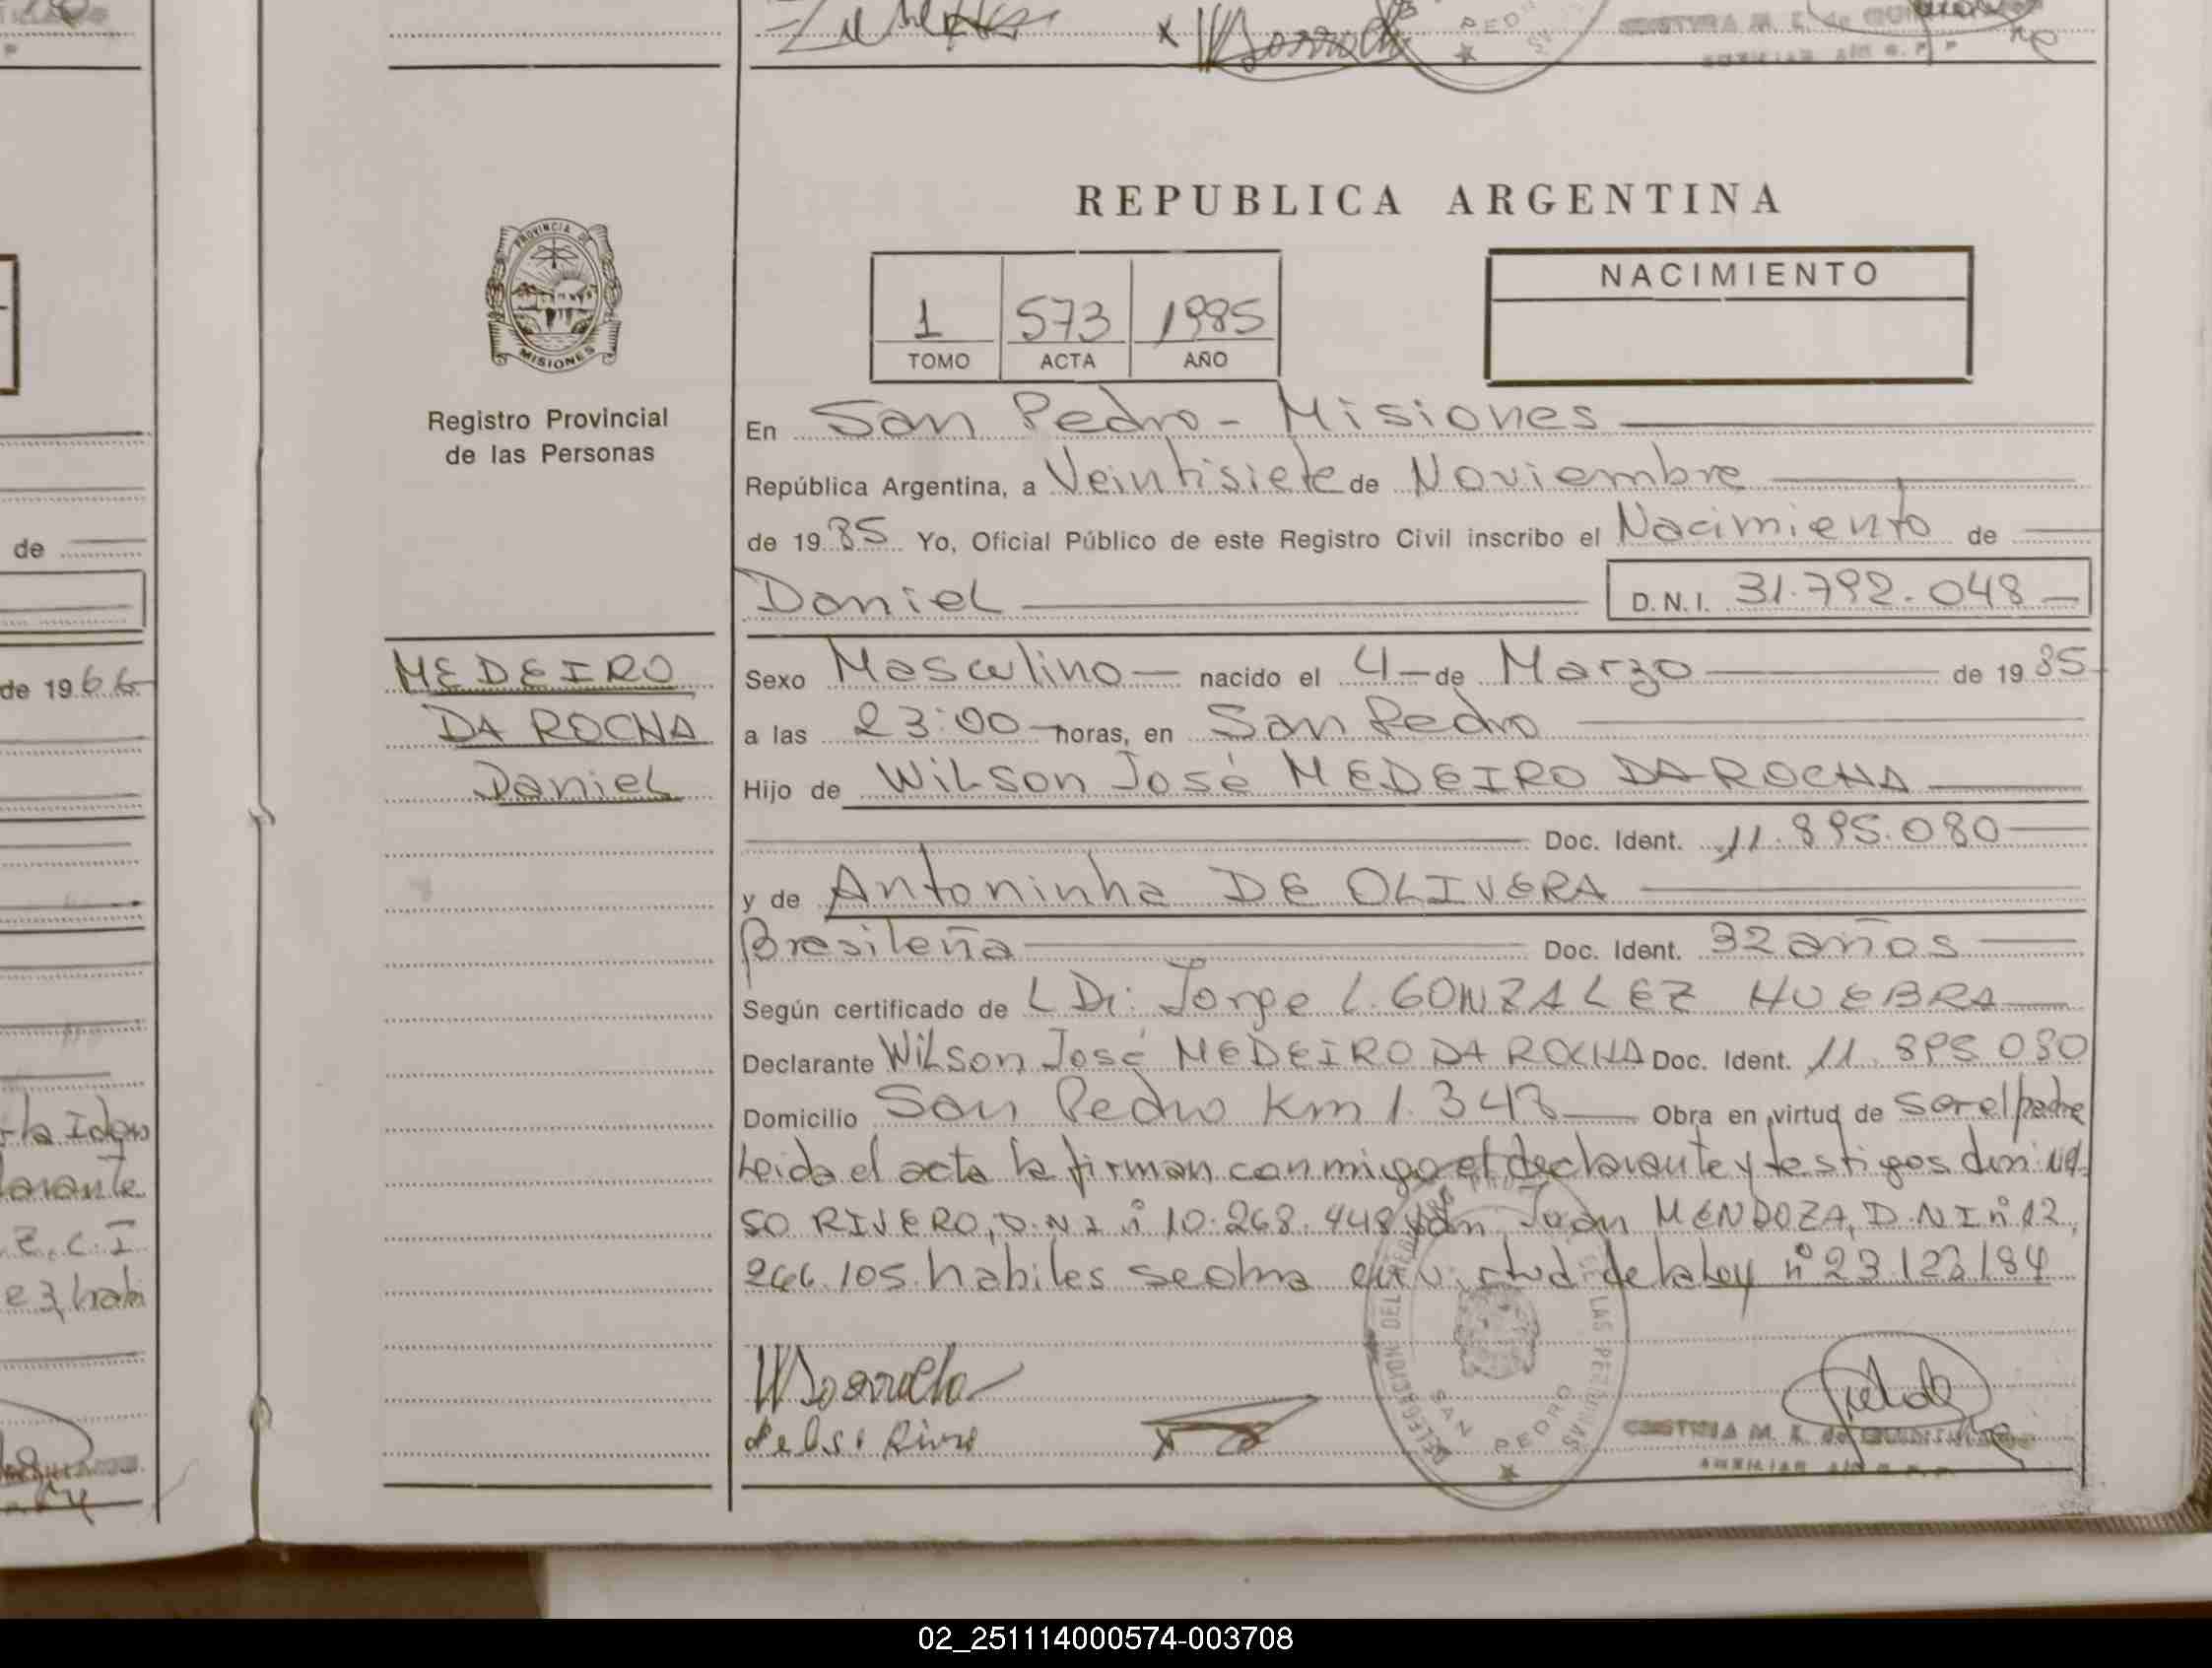 REPUBLICA ARGENTINA
PROVINCIA DE
MISIONES
Registro Provincial
de las Personas
1 573 1985
TOMO ACTA AÑO
NACIMIENTO
En San Pedro - Misiones
República Argentina, a Veintisiete de Noviembre
de 1985 Yo, Oficial Público de este Registro Civil inscribo el Nacimiento de
Daniel D.N.I. 31.792.048
MEDEIRO
DA ROCHA
Daniel
Sexo Masculino nacido el 4 de Marzo de 1985
a las 23:00 horas, en San Pedro
Hijo de Wilson José MEDEIRO DA ROCHA
Doc. Ident. 11.895.080
y de Antoninha DE OLIVERA
Brasileña Doc. Ident. 32 años
Según certificado de L Dr: Jorge L. GONZALEZ HUEBRA
Declarante Wilson José MEDEIRO DA ROCHA Doc. Ident. 11.895.080
Domicilio San Pedro Km 1.343 Obra en virtud de ser el padre
Leida el acta la firman conmigo el declarante y testigos don
SO RIVERO, D.N.I n° 10.268.448 y don Juan MENDOZA, D.N.I n° 12,
266.105. habiles se obra en virtud de la Ley n° 23.122/84
DELEGACION DEL REGISTRO LAS PERSONAS
SAN PEDRO
CRISTINA M. E. de
AUXILIAR
de 1966
de
02_251114000574-003708